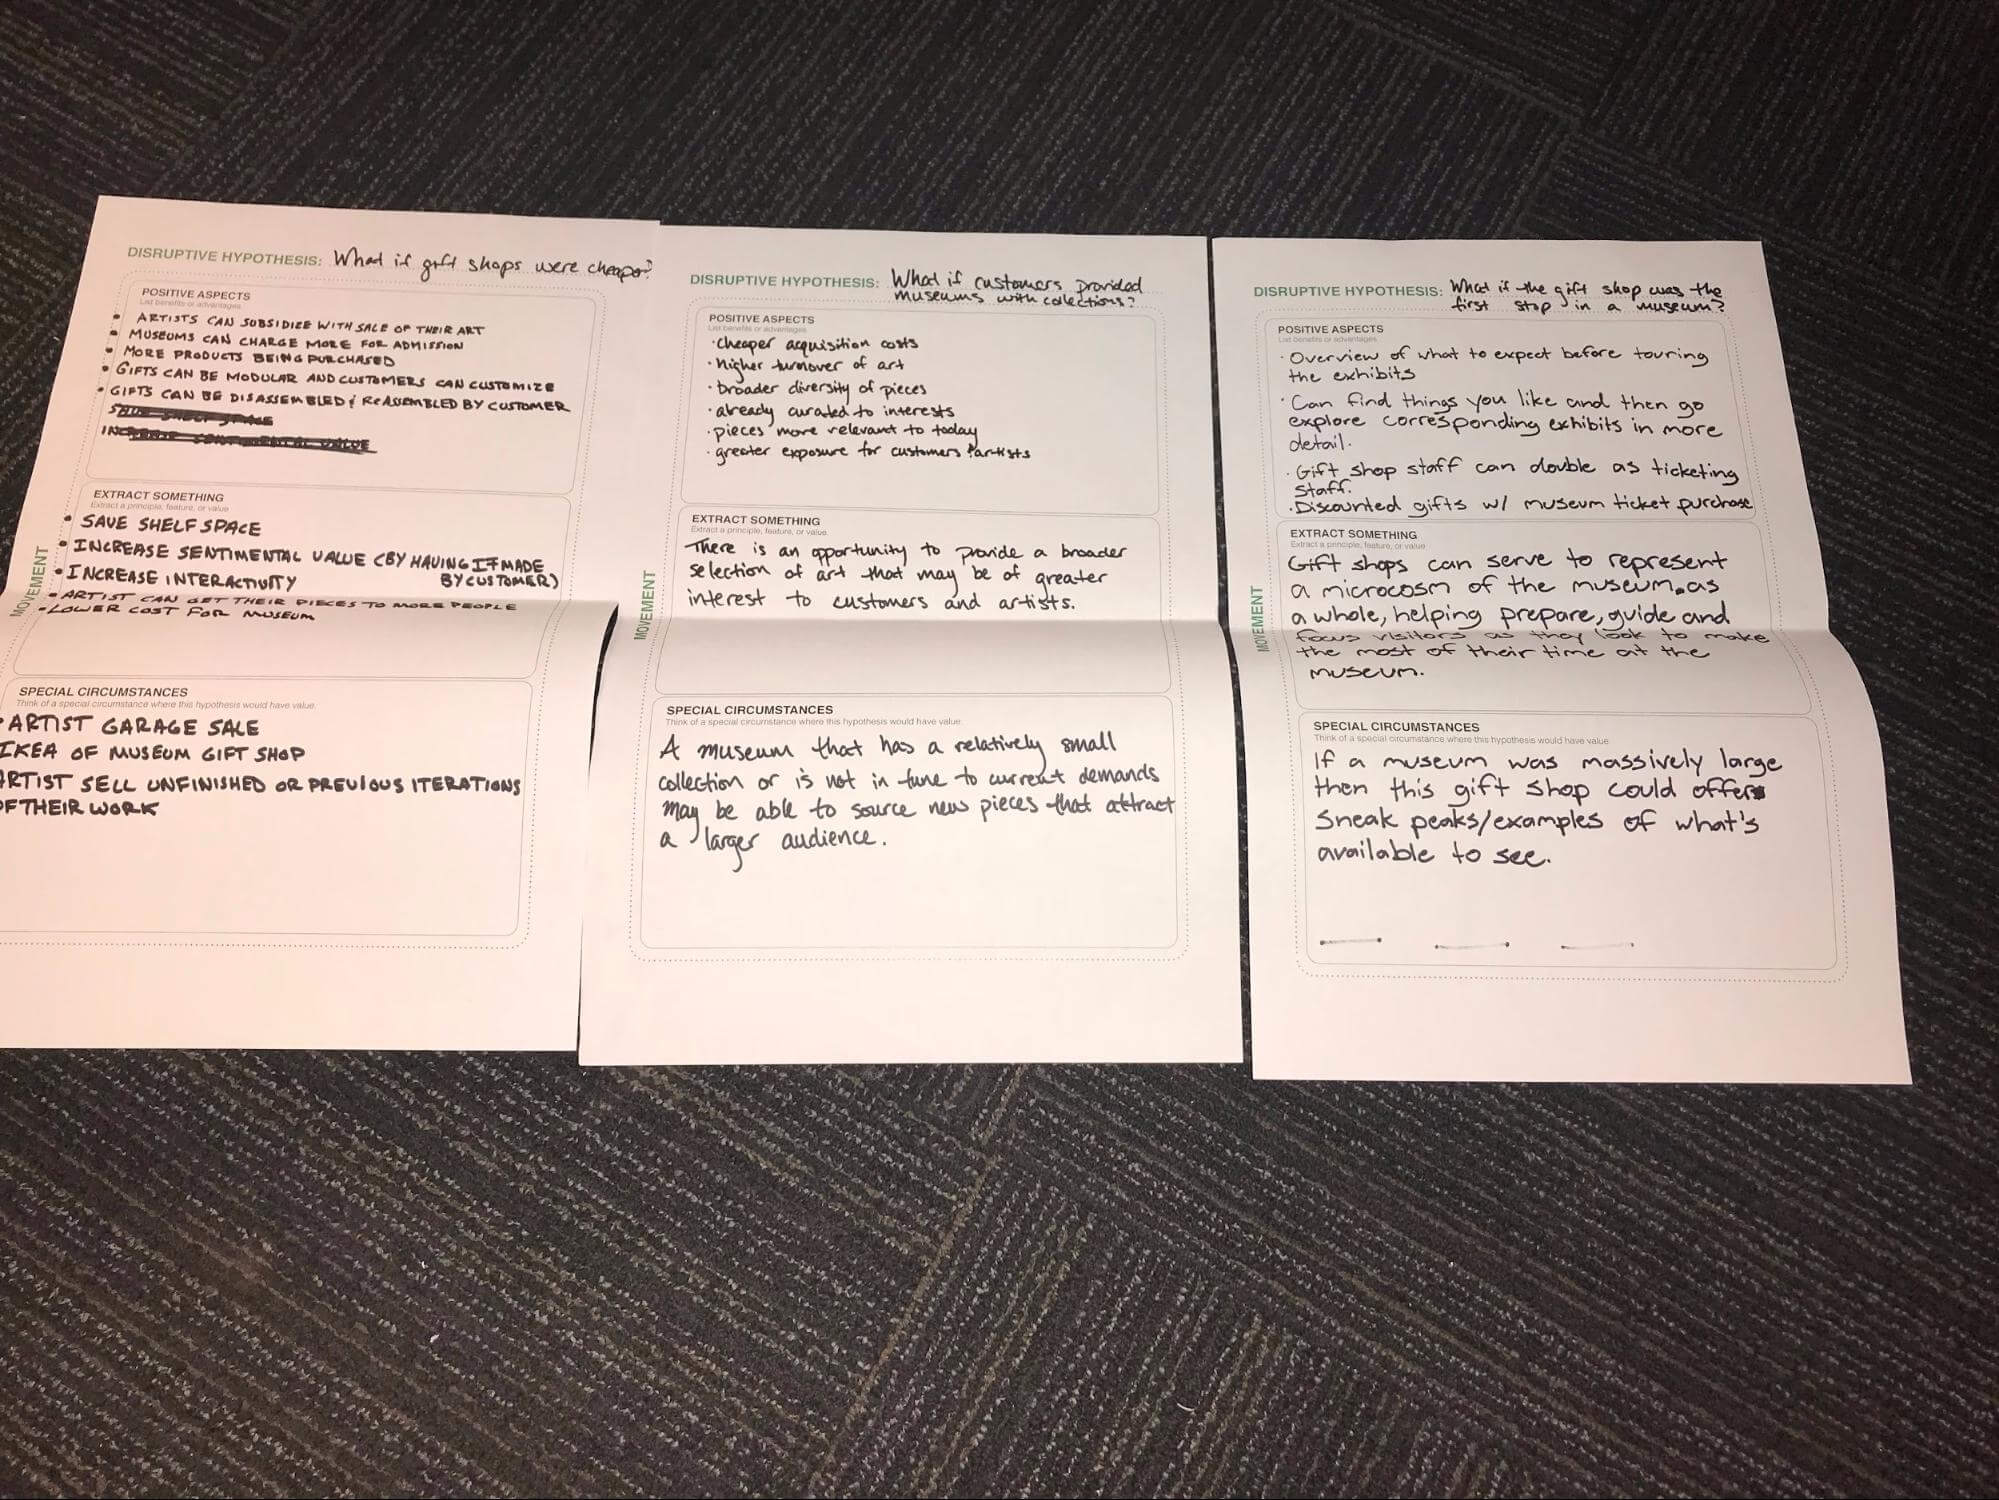 DISRUPTIVE HYPOTHESIS: What if gift shops were cheaper?
POSITIVE ASPECTS
List benefits or advantages
• ARTISTS CAN SUBSIDIZE WITH SALE OF THEIR ART
• MUSEUMS CAN CHARGE MORE FOR ADMISSION
• MORE PRODUCTS BEING PURCHASED
• GIFTS CAN BE MODULAR AND CUSTOMERS CAN CUSTOMIZE
• GIFTS CAN BE DISASSEMBLED & REASSEMBLED BY CUSTOMER
SAVE SHELF SPACE
INCREASE SENTIMENTAL VALUE
EXTRACT SOMETHING
Extract a principle, feature, or value
• SAVE SHELF SPACE
• INCREASE SENTIMENTAL VALUE (BY HAVING IT MADE
BY CUSTOMER)
• INCREASE INTERACTIVITY
• ARTIST CAN GET THEIR PIECES TO MORE PEOPLE
• LOWER COST FOR MUSEUM
MOVEMENT
SPECIAL CIRCUMSTANCES
Think of a special circumstance where this hypothesis would have value.
• ARTIST GARAGE SALE
IKEA OF MUSEUM GIFT SHOP
ARTIST SELL UNFINISHED OR PREVIOUS ITERATIONS
OF THEIR WORK
DISRUPTIVE HYPOTHESIS: What if customers provided
museums with collections?
POSITIVE ASPECTS
List benefits or advantages
• cheaper acquisition costs
• higher turnover of art
• broader diversity of pieces
• already curated to interests
• pieces more relevant to today
• greater exposure for customers & artists
EXTRACT SOMETHING
Extract a principle, feature, or value
There is an opportunity to provide a broader
selection of art that may be of greater
interest to customers and artists.
MOVEMENT
SPECIAL CIRCUMSTANCES
Think of a special circumstance where this hypothesis would have value.
A museum that has a relatively small
collection or is not in tune to current demands
may be able to source new pieces that attract
a larger audience.
DISRUPTIVE HYPOTHESIS: What if the gift shop was the
first stop in a museum?
POSITIVE ASPECTS
List benefits or advantages
• Overview of what to expect before touring
the exhibits
• Can find things you like and then go
explore corresponding exhibits in more
detail.
• Gift shop staff can double as ticketing
staff.
• Discounted gifts w/ museum ticket purchase
EXTRACT SOMETHING
Extract a principle, feature, or value
Gift shops can serve to represent
a microcosm of the museum as
a whole, helping prepare, guide and
focus visitors as they look to make
the most of their time at the
museum.
MOVEMENT
SPECIAL CIRCUMSTANCES
Think of a special circumstance where this hypothesis would have value.
If a museum was massively large
then this gift shop could offer
sneak peaks/examples of what's
available to see.